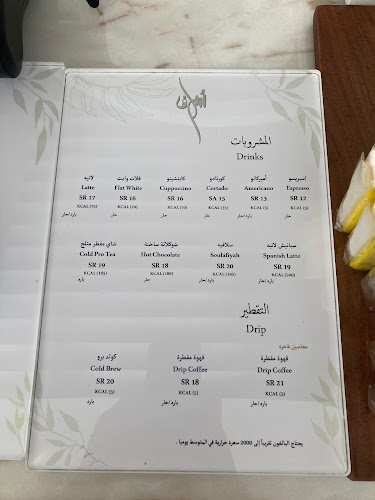 أوراق
المشروبات
Drinks
إسبريسو أمريكانو كورتادو كابتشينو فلات وايت لاتيه
Espresso Americano Cortado Cuppoccino Flat White Latte
SR 12 SR 13 SA 15 SR 16 SR 16 SR 17
حار بارد/حار حار حار بارد/حار
سبانيش لاتيه سلافيه شوكلاتة ساخنة شاي مقطر مثلج
Spanish Latte Soulafiyah Hot Chocolate Cold Pro Tea
SR 19 SR 20 SR 18 SR 19
بارد/حار بارد/حار حار بارد
التقطير
Drip
محاصيل فاخرة
قهوة مقطرة قهوة مقطرة كولد برو
Drip Coffee Drip Coffee Cold Brew
SR 21 SR 18 SR 20
KCAL (5) KCAL (5) KCAL (5)
بارد/حار بارد/حار بارد
يحتاج البالغون تقريباً إلى 2000 سعرة حرارية في المتوسط يوميا .